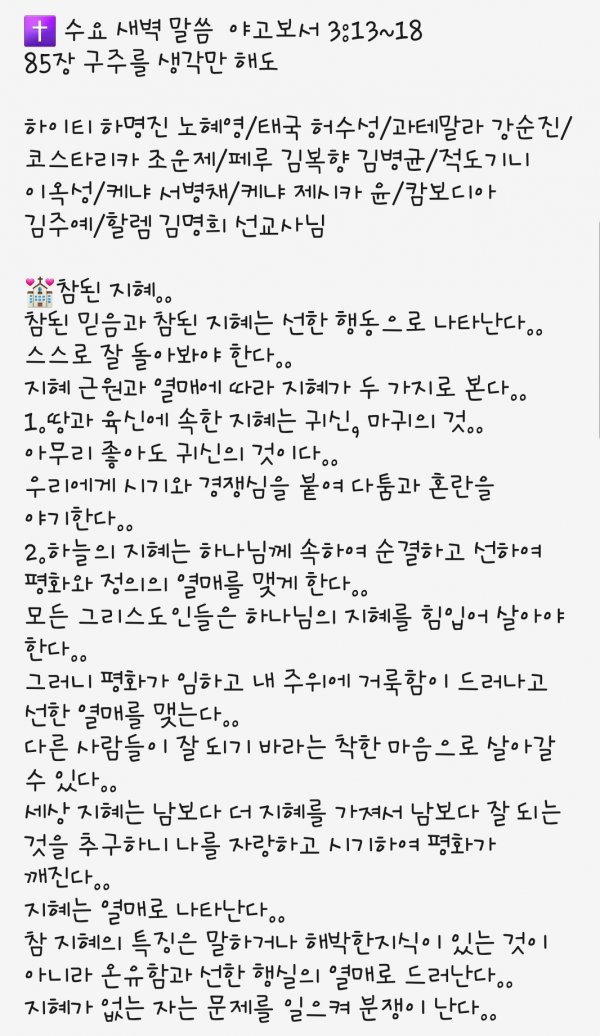 ✝️ 수요 새벽 말씀  야고보서 3:13~18
85장 구주를 생각만 해도

하이티 하명진 노혜영/태국 허수성/과테말라 강순진/
코스타리카 조운제/페루 김복향 김병균/적도기니
이옥성/케냐 서병채/케냐 제시카 윤/캄보디아
김주예/할렘 김명희 선교사님

💒참된 지혜。。
참된 믿음과 참된 지혜는 선한 행동으로 나타난다。。
스스로 잘 돌아봐야 한다。。
지혜 근원과 열매에 따라 지혜가 두 가지로 본다。。
1。땅과 육신에 속한 지혜는 귀신, 마귀의 것。。
아무리 좋아도 귀신의 것이다。。
우리에게 시기와 경쟁심을 붙여 다툼과 혼란을
야기한다。。
2。하늘의 지혜는 하나님께 속하여 순결하고 선하여
평화와 정의의 열매를 맺게 한다。。
모든 그리스도인들은 하나님의 지혜를 힘입어 살아야
한다。。
그러니 평화가 임하고 내 주위에 거룩함이 드러나고
선한 열매를 맺는다。。
다른 사람들이 잘 되기 바라는 착한 마음으로 살아갈
수 있다。。
세상 지혜는 남보다 더 지혜를 가져서 남보다 잘 되는
것을 추구하니 나를 자랑하고 시기하여 평화가
깨진다。。
지혜는 열매로 나타난다。。
참 지혜의 특징은 말하거나 해박한지식이 있는 것이
아니라 온유함과 선한 행실의 열매로 드러난다。。
지혜가 없는 자는 문제를 일으켜 분쟁이 난다。。